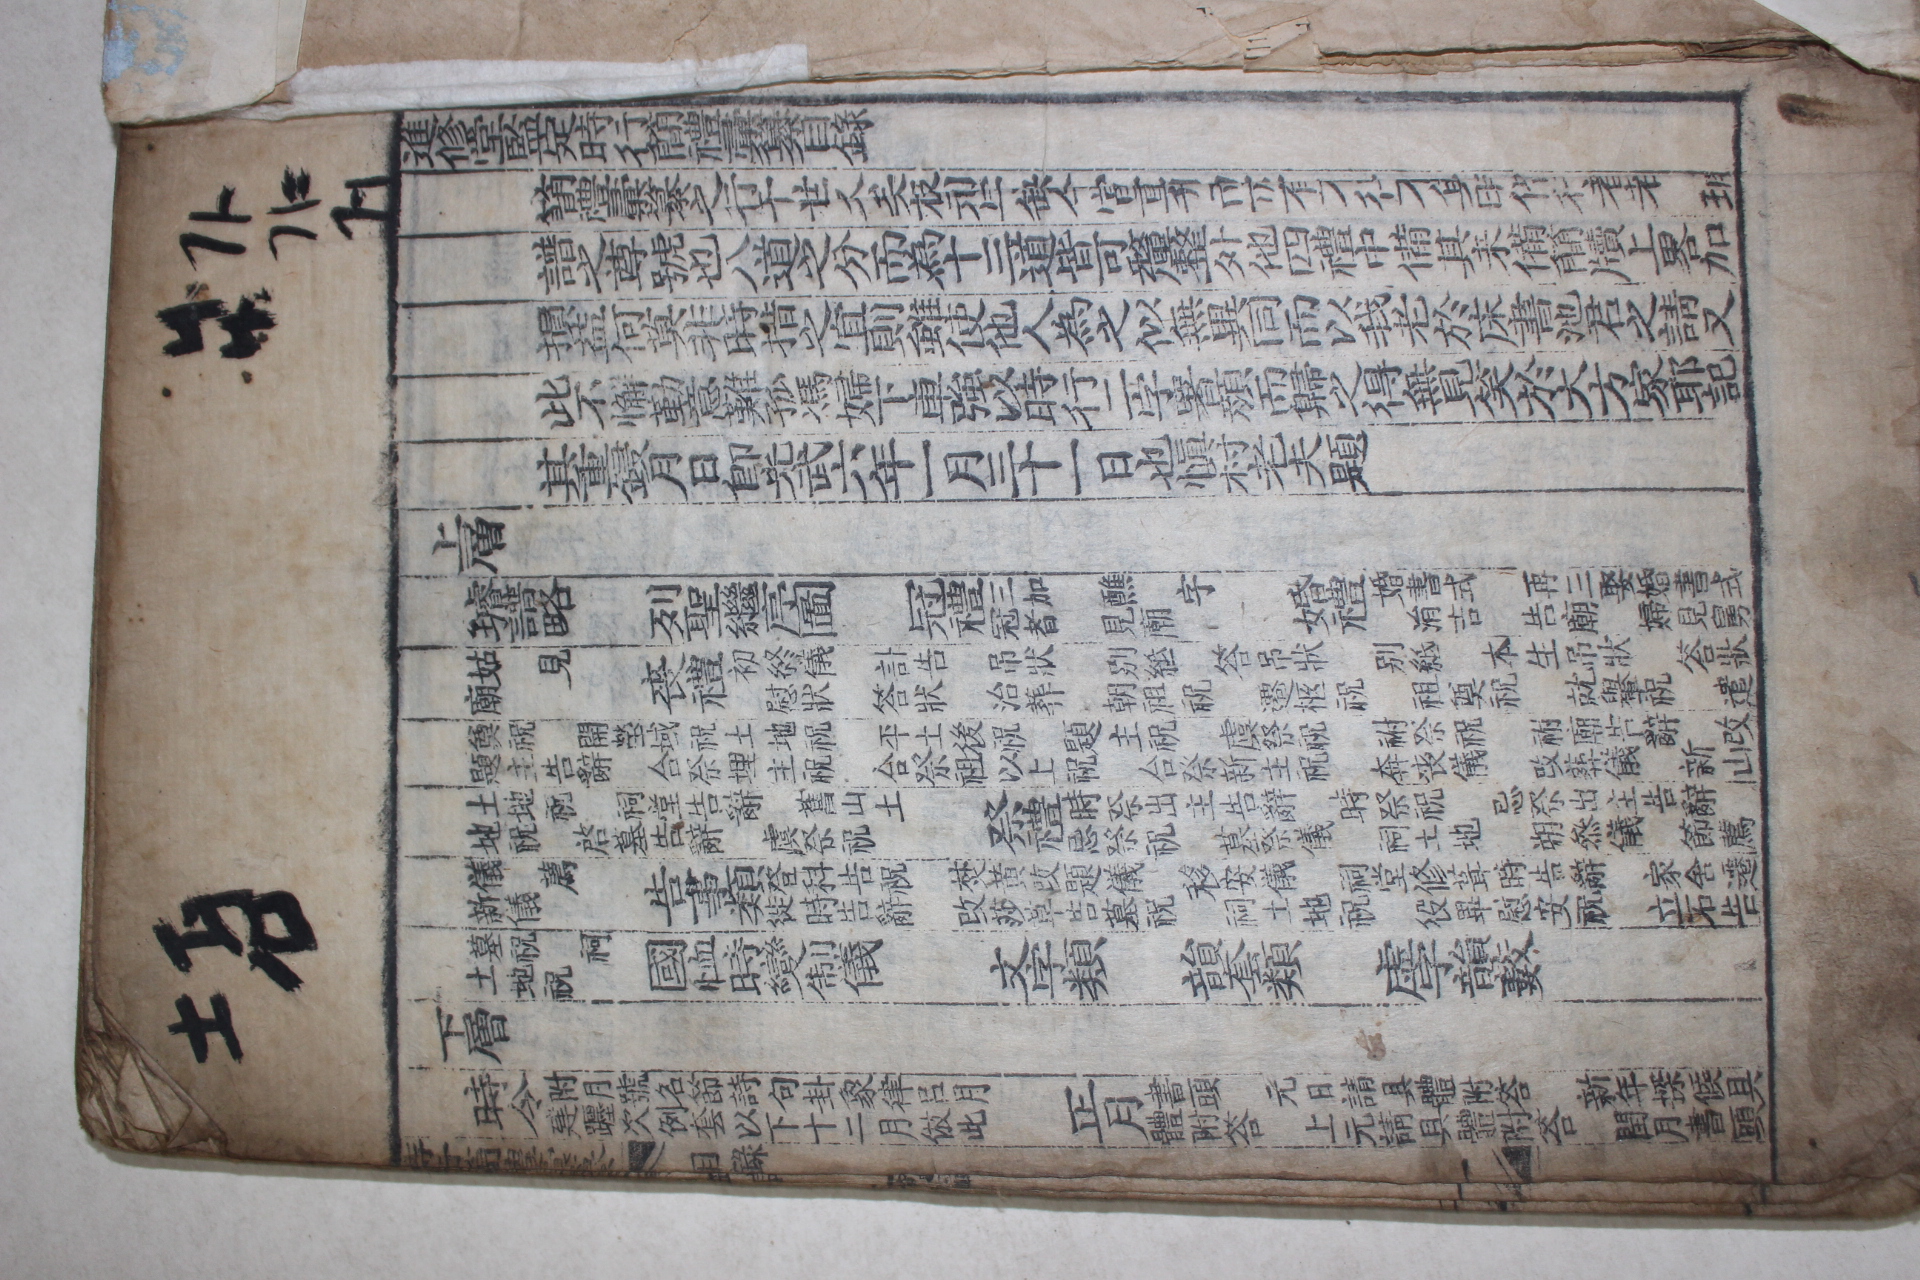 가
갸
거
進修堂監定時行簡禮彙纂目錄
簡禮彙纂之行于世久矣板刓字缺今當重刊而亦有不行不
譜之尊號也八道之分而為十三道皆可釐整外他四禮中備其未備簡牘上畧加
損益何莫非時措之宜則雖使他人為之似無異同而以我老於床書池君之請又
此不懈勤意難孤馮婦下車強以時行二字署顏而歸之得無見笑於大方家耶記
其重鋟月日卽光武六年一月三十一日也愼村老夫題
上層
璿譜略 列聖繼序圖 冠禮 三加 醮 字 冠者 見廟 婚禮 婚書式 再三娶婚書式 涓吉 告廟 婦見舅
姑 見廟 喪禮 初終儀 訃告 吊狀 別紙 答吊狀 別紙 本生吊狀 答狀 慰狀 答狀 治葬 朝祖祝 遷柩祝 祖奠祝 就轝祝 遣
奠祝 開塋域祝 土地祝 平土後祝 題主祝 虞祭祝 祔祭祝 祔廟告辭 改
題主告辭 合祭埋主祝 合祭祖以上祝 合祭新主祝 奔喪儀 改葬儀 新山
土地祝 祠堂告辭 舊山土
地祝 啓墓告辭 虞祭祝 祭禮 時祭出主告辭 時祭祝 忌祭出主告辭 忌祭祝 墓祭儀 祠土地 朔參儀 節薦
儀 薦新儀 告書類 登科告祝 焚黃改題儀 移安儀 祠堂修葺時告辭 家舍遷
徙時告辭 改莎草告墓祝 祠土地祝 役畢慰安祝 立石告
墓祝 祠土地祝 國恤時變制儀 文字類 韻套類 虛字韻藪
下層
時令 附月號名節詩句卦象律呂月建躔次例套以下十二月倣此 正月 書頭 元日請具體附答 新年探候具
體附答 上元請具體附答 閏月書頭
目錄